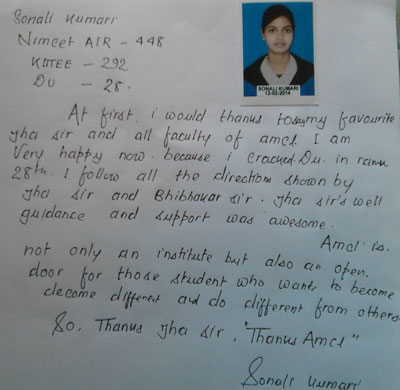 Sonali Kumari
Nimcet AIR - 448
KIITEE - 292
DU - 28.
SONALI KUMARI
13-02-2014
At first, i would thanks to say my favourite
jha sir and all faculty of amcl. I am
Very happy now. because i cracked Du. in rank
28th. I follow all the direction shown by
jha sir and Bhibhakar sir. jha sir's well
guidance and support was awesome.
Amcl is.
not only an institute but also an open.
door for those student who wants to become
decome different and do different from others
So. Thanks jha sir, "Thanks Amcl"
Sonali Kumari